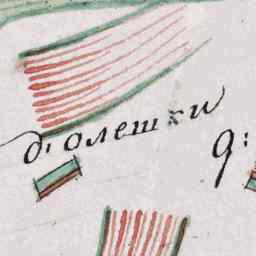 д: олешки
д: